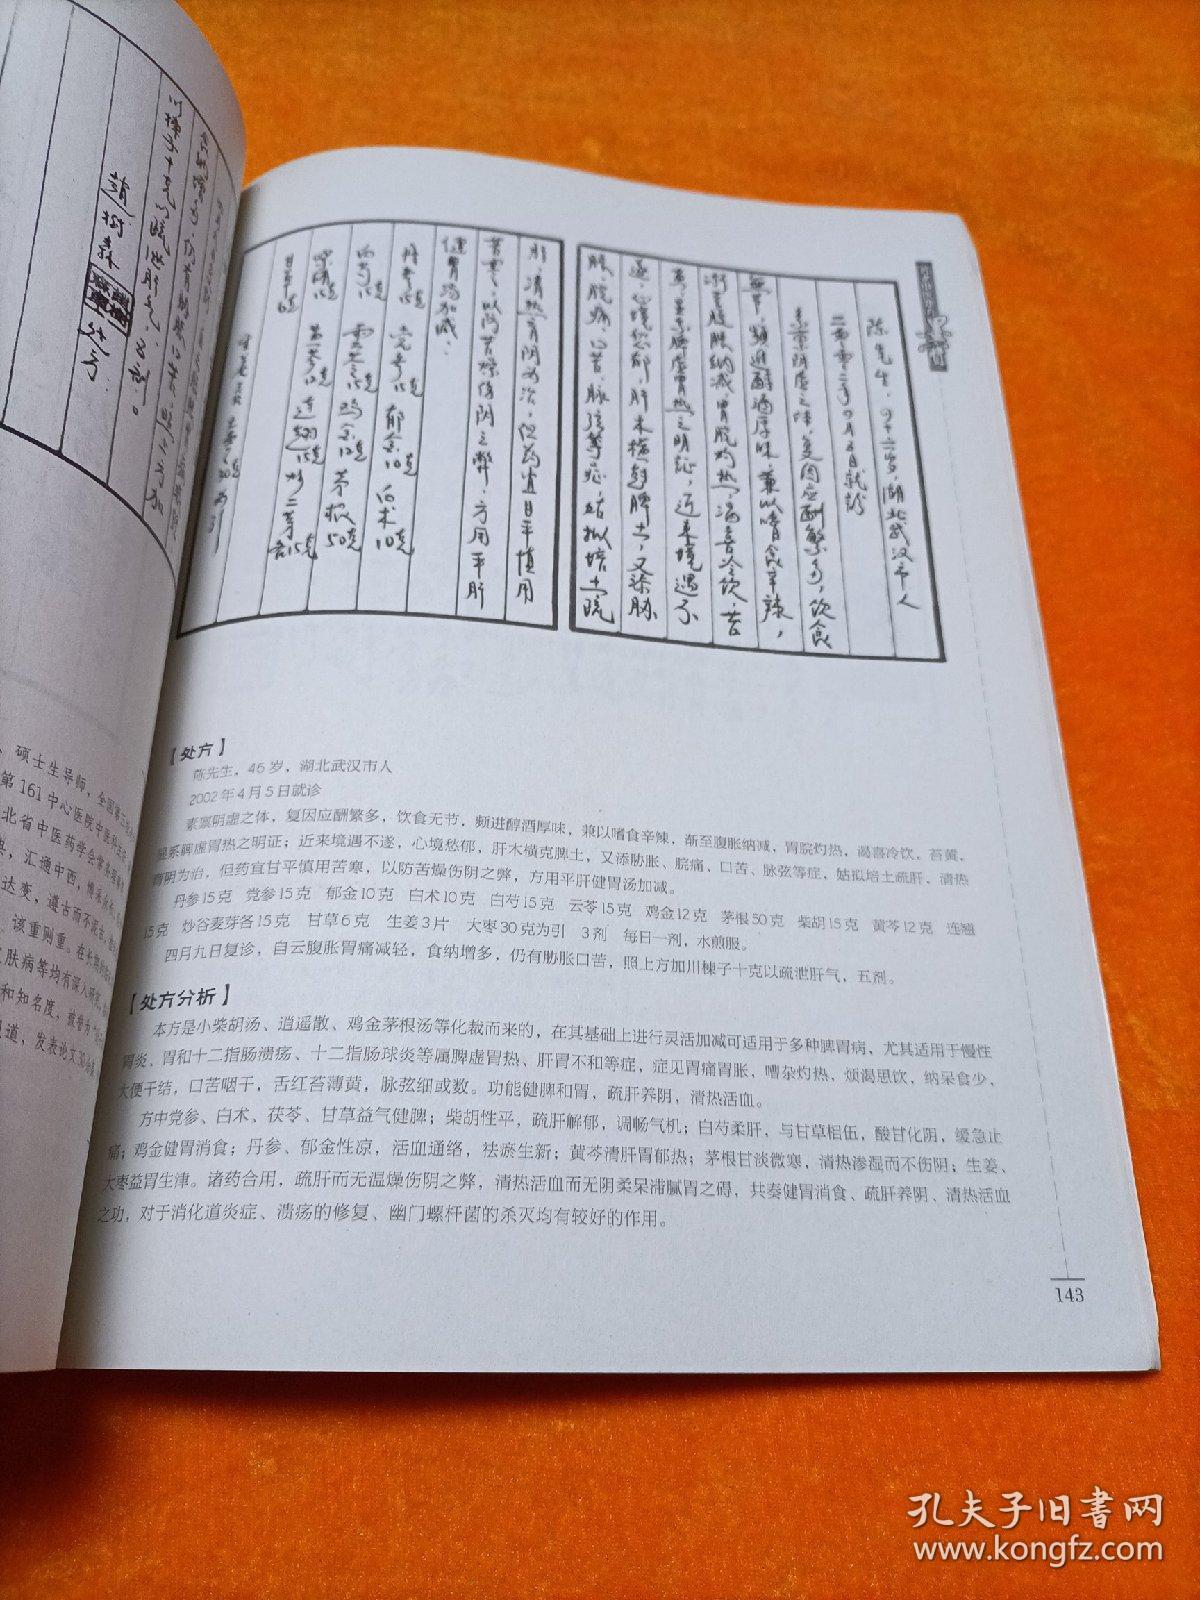 陈先生，四十六岁，湖北武汉市人
二零零二年四月五日就诊
素禀阴虚之体，复因应酬繁多，饮食
无节，频进醇酒厚味，兼以嗜食辛辣，
渐至腹胀纳减，胃脘灼热，渴喜冷饮，苔
黄，显系脾虚胃热之明证，近来境遇不
遂，心境愁郁，肝木横克脾土，又添胁
胀，脘痛，口苦，脉弦等症，姑拟培土疏
肝，清热育阴为治，但药宜甘平慎用
苦寒，以防苦燥伤阴之弊，方用平肝
健胃汤加减：
丹参15克 党参15克 郁金10克 白术10克
白芍15克 云苓15克 鸡金12克 茅根50克
柴胡15克 黄芩12克 连翘15克 炒二芽各15克
甘草6克
【处方】
陈先生，46岁，湖北武汉市人
2002年4月5日就诊
素禀阴虚之体，复因应酬繁多，饮食无节，频进醇酒厚味，兼以嗜食辛辣，渐至腹胀纳减，胃脘灼热，渴喜冷饮，苔黄，
显系脾虚胃热之明证；近来境遇不遂，心境愁郁，肝木横克脾土，又添胁胀、脘痛、口苦、脉弦等症，姑拟培土疏肝、清热
育阴为治，但药宜甘平慎用苦寒，以防苦燥伤阴之弊，方用平肝健胃汤加减。
丹参15克 党参15克 郁金10克 白术10克 白芍15克 云苓15克 鸡金12克 茅根50克 柴胡15克 黄芩12克 连翘
15克 炒谷麦芽各15克 甘草6克 生姜3片 大枣30克为引 3剂 每日一剂，水煎服。
四月九日复诊，自云腹胀胃痛减轻，食纳增多，仍有胁胀口苦，照上方加川楝子十克以疏泄肝气，五剂。
【处方分析】
本方是小柴胡汤、逍遥散、鸡金茅根汤等化裁而来的，在其基础上进行灵活加减可适用于多种脾胃病，尤其适用于慢性
胃炎、胃和十二指肠溃疡、十二指肠球炎等属脾虚胃热、肝胃不和等症，症见胃痛胃胀，嘈杂灼热、烦渴思饮，纳呆食少，
大便干结，口苦咽干，舌红苔薄黄，脉弦细或数。功能健脾和胃，疏肝养阴，清热活血。
方中党参、白术、茯苓、甘草益气健脾；柴胡性平，疏肝解郁，调畅气机；白芍柔肝，与甘草相伍，酸甘化阴，缓急止
痛；鸡金健胃消食；丹参、郁金性凉，活血通络，祛淤生新；黄芩清肝胃郁热；茅根甘淡微寒，清热渗湿而不伤阴；生姜、
大枣益胃生津。诸药合用，疏肝而无温燥伤阴之弊，清热活血而无阴柔呆滞腻胃之碍，共奏健胃消食、疏肝养阴、清热活血
之功，对于消化道炎症、溃疡的修复、幽门螺杆菌的杀灭均有较好的作用。
143
硕士生导师，全国第
第161中心医院中医科
北省中医药学会常务理事
汇通中西，
达变，遵古而不泥古
该重则重。在长期
肤病等均有深入研究
和知名度，被誉为
道，发表论文30余篇
孔夫子旧书网
www.kongfz.com